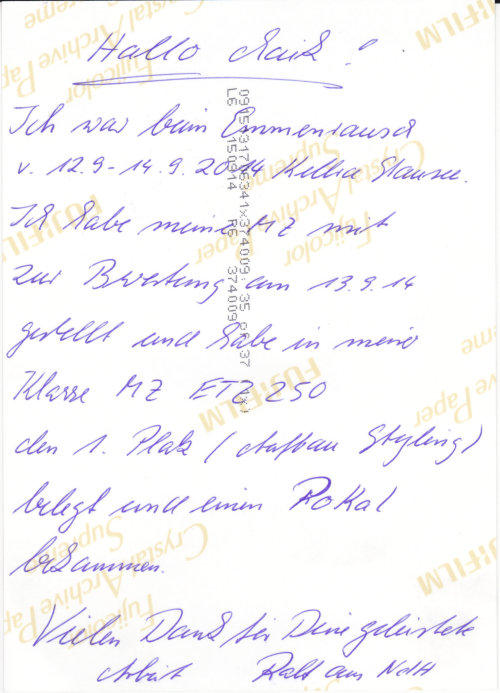 Hallo Maik!
Ich war beim Emmenrausch
v. 12.9-14.9.2014 Kelbra Stausee.
Ich habe meine MZ mit
zur Bewertung am 13.9.14
gestellt und habe in meine
Klasse MZ ETZ 250
den 1. Platz (Aufbau Styling)
belegt und einen Pokal
bekammen.
Vielen Dank für Deine geleistete
Arbeit Ralf aus NdH
FUJIFILM
Fujicolor
Crystal Archive Paper
Supreme